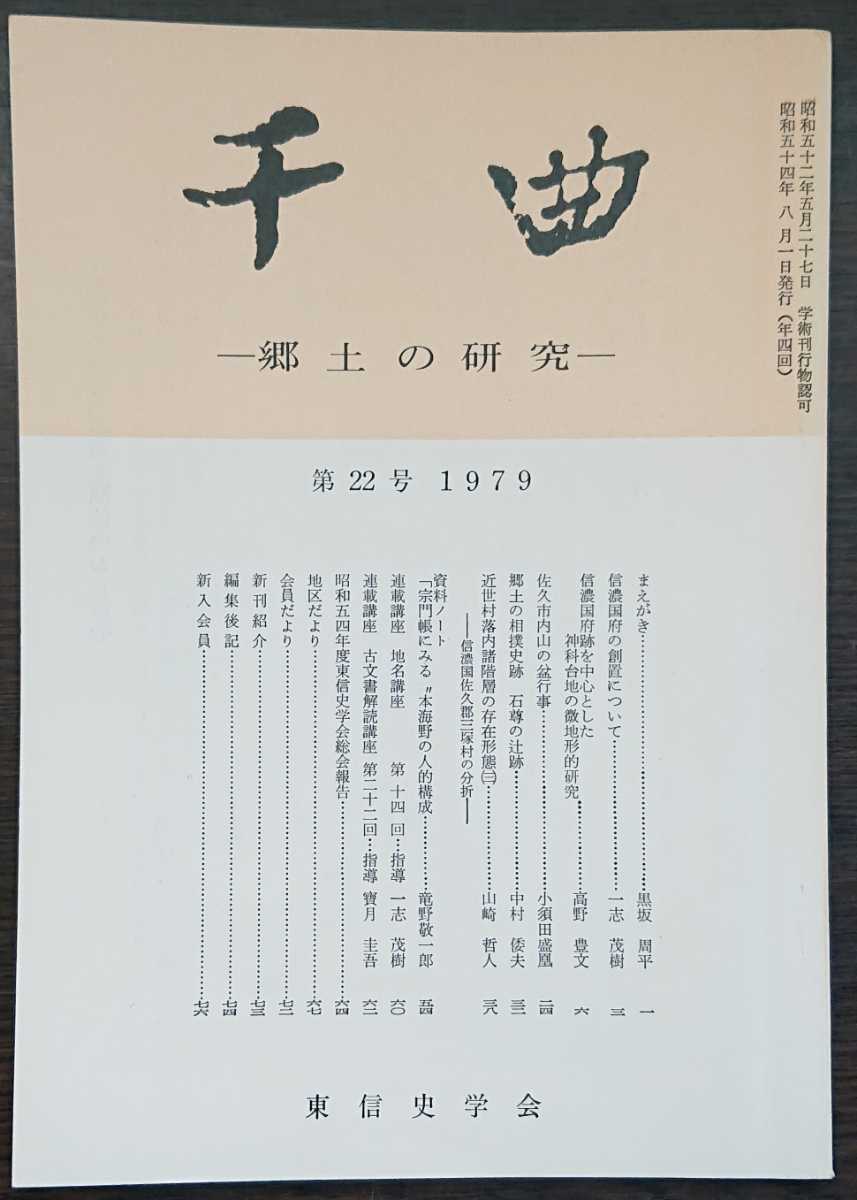 昭和五十二年五月二十七日 学術刊行物認可
昭和五十四年 八 月一日発行（年四回）
千曲
―郷土の研究―
第 22 号 1979
まえがき…………黒坂 周平 一
信濃国府の創置について…………一志 茂樹 三
信濃国府跡を中心とした
神科台地の微地形的研究…………高野 豊文 六
佐久市内山の盆行事…………小須田盛凰 二四
郷土の相撲史跡 石尊の辻跡…………中村 倭夫 三三
近世村落内諸階層の存在形態㈢…………山崎 哲人 三八
――信濃国佐久郡三塚村の分折――
資料ノート
「宗門帳にみる〃本海野の人的構成…………竜野敬一郎 五四
連載講座 地名講座 第 十四 回…指導 一志 茂樹 六〇
連載講座 古文書解読講座 第二十二回…指導 寶月 圭吾 六二
昭和五四年度東信史学会総会報告…………六四
地区だより…………六七
会員だより…………七二
新刊紹介…………七三
編集後記…………七四
新入会員…………七六
東信史学会